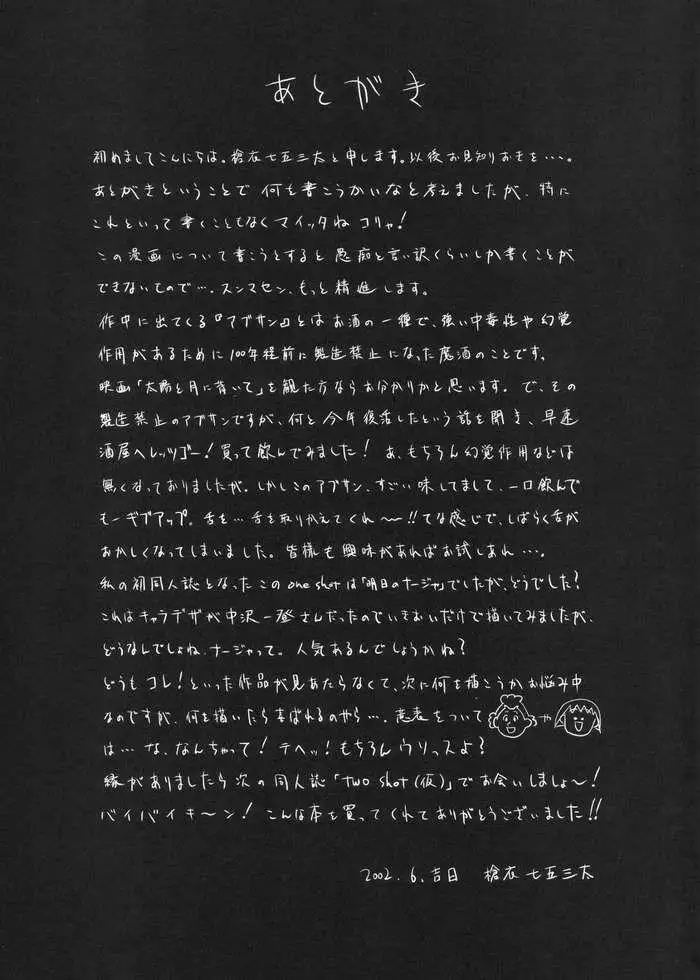 あとがき
初めましてこんにちは。槍衣七五三太と申します。以後お見知りおきを…。
あとがきということで何を書こうかいなと考えましたが、特に
これといって書くこともなくマイッタね コリャ!
この漫画について書こうとすると愚痴と言い訳くらいしか書くことが
できないもので…。スンマセン、もっと精進します。
作中に出てくる『アブサン』とはお酒の一種で、強い中毒性や幻覚
作用があるために100年程前に製造禁止になった魔酒のことです。
映画「太陽と月に背いて」を観た方ならお分かりかと思います。で、その
製造禁止のアブサンですが、何と今年復活したという話を聞き、早速
酒屋へレッツゴー!買って飲んでみました!あ、もちろん幻覚作用などは
無くなっておりましたが。しかしこのアブサン、すごい味してまして、一口飲んで
もーギブアップ。舌を…舌を取りかえてくれ〜〜!!てな感じで、しばらく舌が
おかしくなってしまいました。皆様も興味があればお試しあれ…。
私の初同人誌となったこのone shotは「明日のナージャ」でしたが、どうでした?
これはキャラデザが中沢一登さんだったのでいきおいだけで描いてみましたが、
どうなんでしょね、ナージャって。人気あるんでしょうかね?
どうもコレ!といった作品が見あたらなくて、次に何を描こうかお悩み中
なのですが、何を描いたら喜ばれるのやら…。意表をついて や
は…な、なんちゃって!テヘッ!もちろんウリっスよ?
縁がありましたら次の同人誌「two shot(仮)」でお会いしましょ〜!
バイバイキ〜ン!こんな本を買ってくれてありがとうございました!!
2002.6.吉日 槍衣七五三太